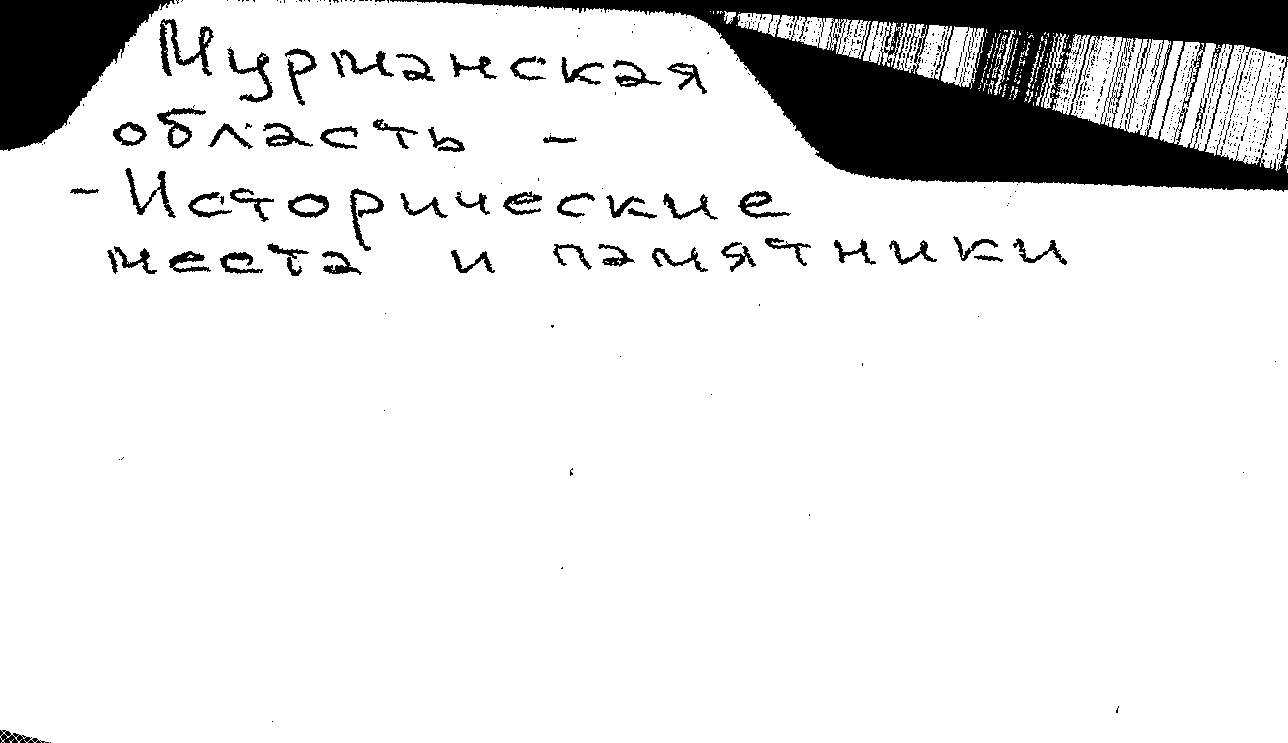 Мурманская
область -
- Исторические
места и памятники